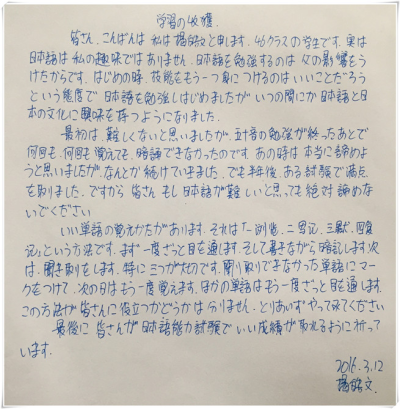 学習の収獲
皆さん、こんばんは 私は楊 文と申します。46クラスの学生です。実は
日本語は私の趣味ではありません。日本語を勉強するのは父の影響をう
けたからです。はじめの時、技能をもう一つ身につけるのはいいことだろう
という態度で日本語を勉強しはじめましたが いつの間にか日本語と日
本の文化に興味を持つようになりました。
最初は難しくないと思いましたが、五十音の勉強が終ったあとで
何回も、何回も覚えても、暗誦できなかったのです。あの時は本当に諦めよ
うと思いましたが、なんとか続けていきました。でも半年後、ある試験で満点
を取りました。ですから皆さん もし日本語が難しいと思っても絶対諦めな
いでください
いい単語の覚えかたがあります。それは「一浏览、二写记、三默、四复
记」という方法です。まず一度ざっと目を通します。そして書きながら暗記します 次
は、聞き取りをします。特に三つが大切です。聞り取りできなかった単語にマー
クをつけて、次の日はもう一度覚えます。ほかの単語はもう一度ざっと目を通します。
この方法が皆さんに役立つかどうかは分りません。とりあいずやってみてください
最後に皆さんが日本語能力試験でいい成績が取れるように祈って
います。
2016.3.12
楊 文.